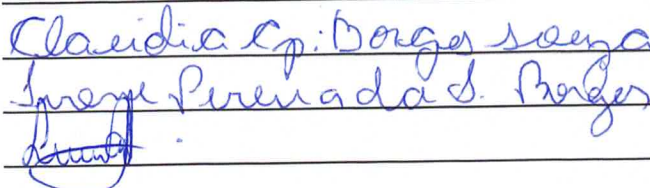 Claudia Ap. Borges souza
Pereira da S. Borges